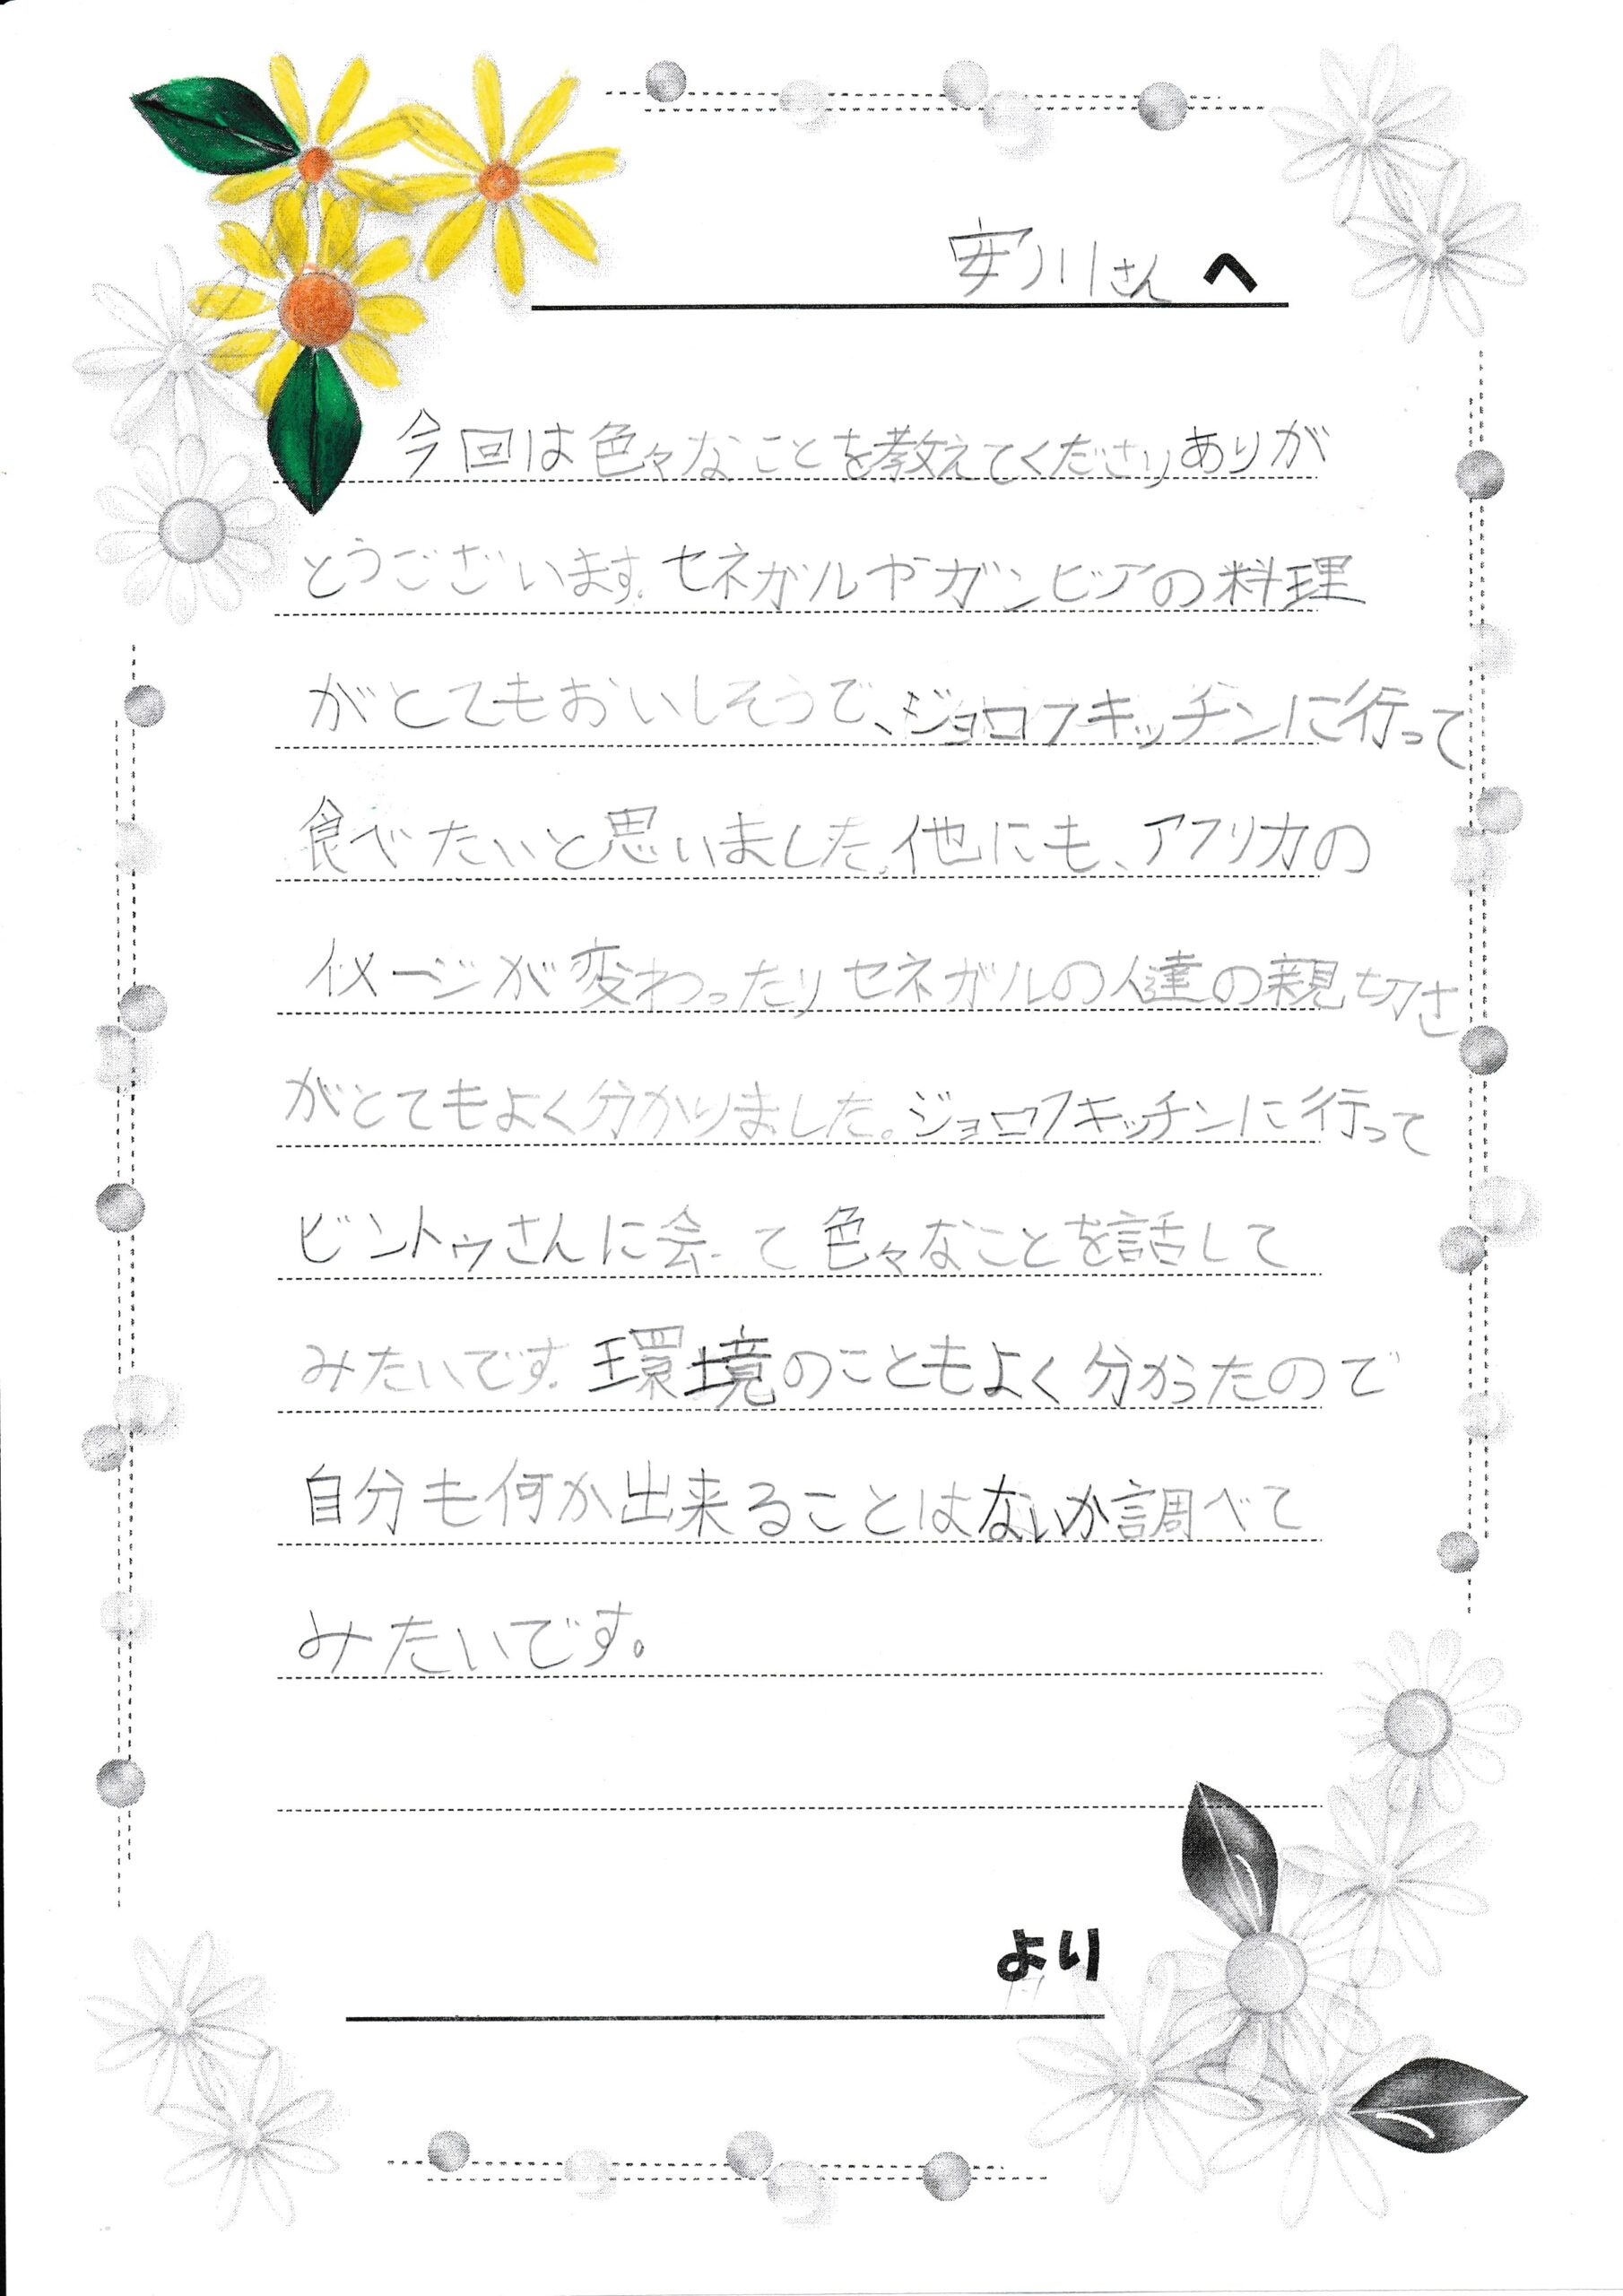 安川さん へ
今回は色々なことを教えてくださりありが
とうございます。セネガルやガンビアの料理
がとてもおいしそうで、ジョロフキッチンに行って
食べたいと思いました。他にも、アフリカの
イメージが変わったりセネガルの人達の親切さ
がとてもよく分かりました。ジョロフキッチンに行って
ビントゥさんに会って色々なことを話して
みたいです。環境のこともよく分かったので
自分も何か出来ることはないか調べて
みたいです。
より